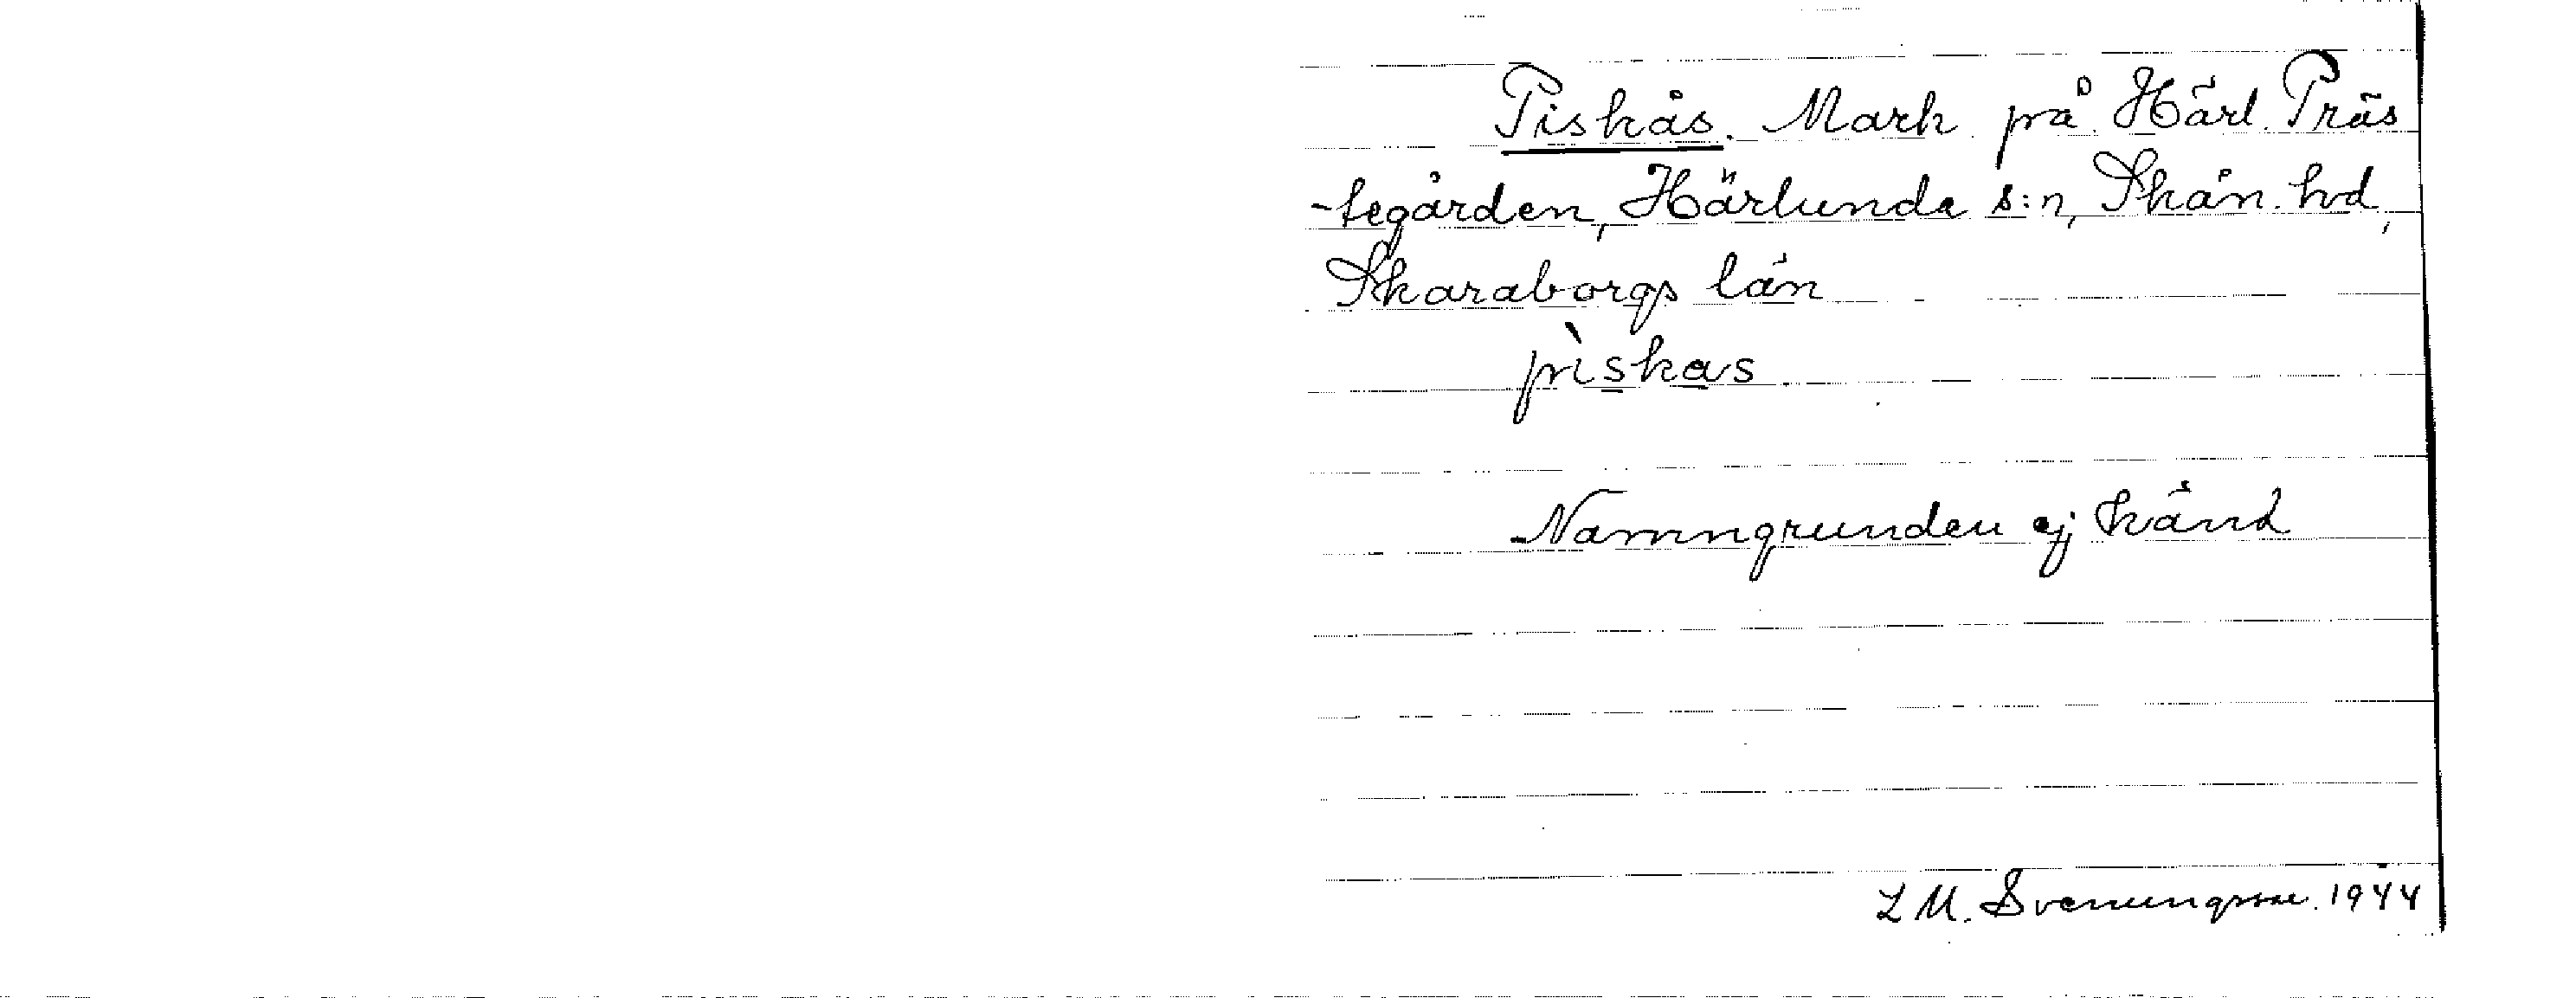 Piskås. Mark på Härl. Präs
-tegården, Härlunda s:n, Skån. hd,
Skaraborgs län
pìskas
Namngrunden ej känd
L M. Svenungsson. 1944